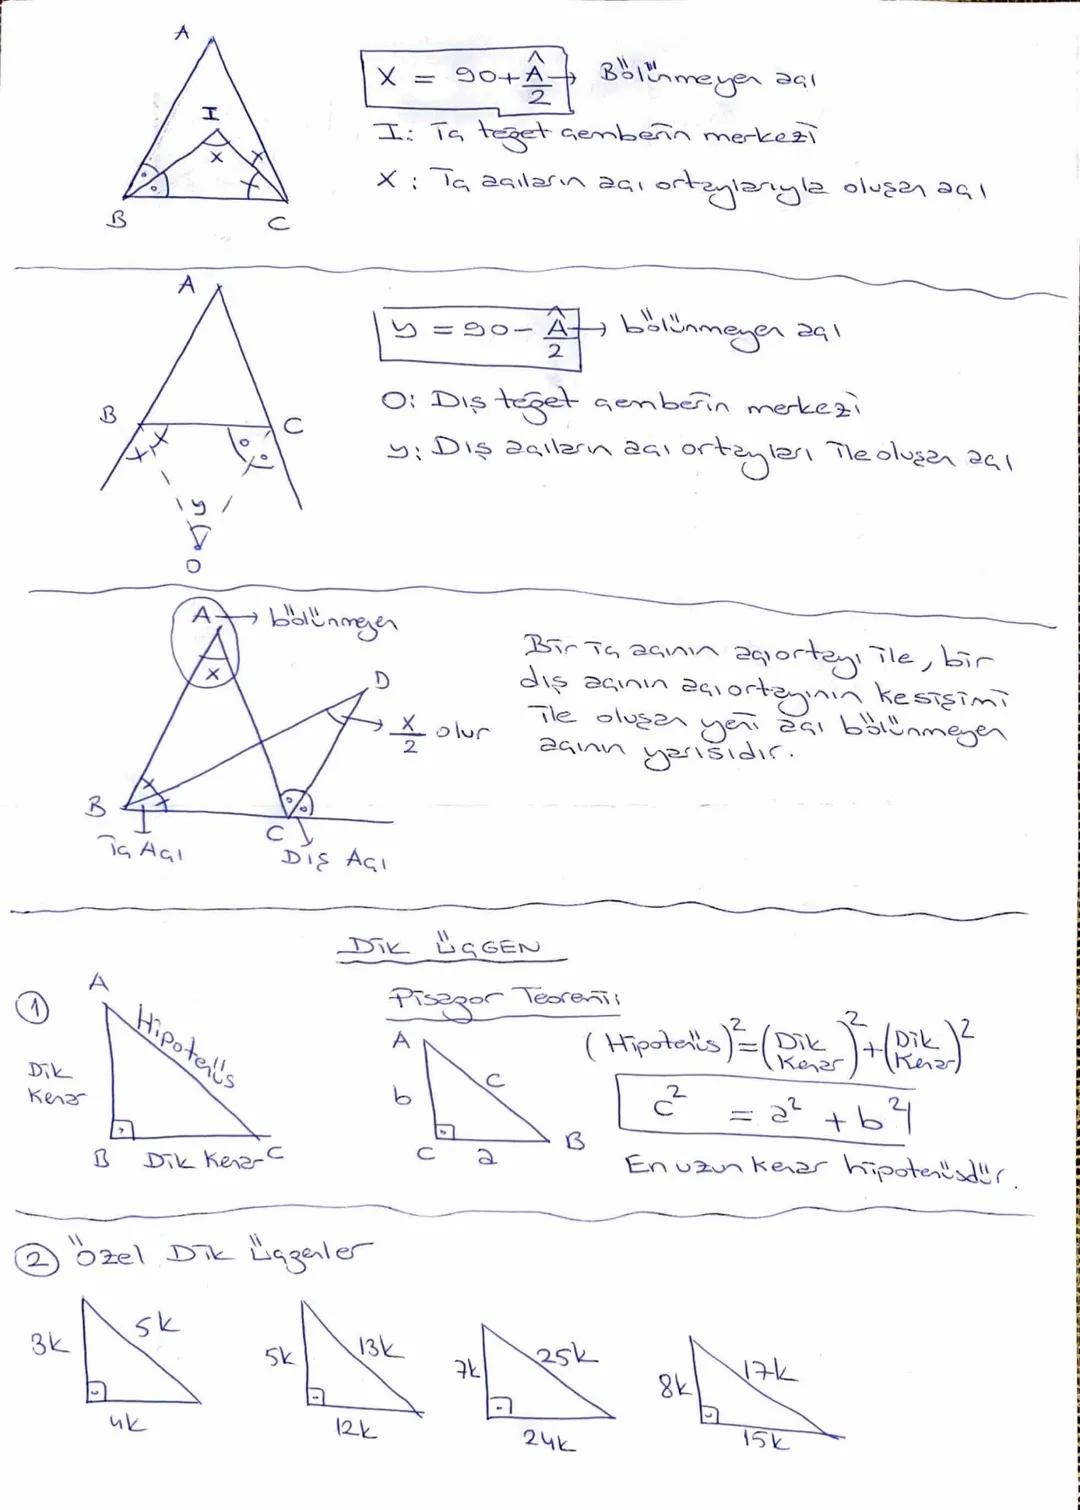 A
x = 90+Â/2 → Bölünmeyen açı
I
I: İç teğet çemberin merkezi
x
x
x : İç açıların açı ortaylarıyla oluşan açı
B
C
A
y = 90 - Â/2 → bölünmeyen açı
B
C
O: Dış teğet çemberin merkezi
x x
y: Dış açıların açı ortayları ile oluşan açı
y
O
A → bölünmeyen
x
D
→ x/2 olur
Bir iç açının açıortayı ile, bir
dış açının açıortayının kesişimi
ile oluşan yeni açı bölünmeyen
açının yarısıdır.
B
C
İç Açı
Dış Açı
DİK ÜÇGEN
1
A
Hipotenüs
Dik
Kenar
B
Dik Kenar
C
Pisagor Teoremi:
A
b
c
C
a
B
(Hipotenüs)² = (Dik Kenar)² + (Dik Kenar)²
c² = a² + b²
En uzun kenar hipotenüsdür.
2 Özel Dik Üçgenler
3k
5k
4k
5k
13k
12k
7k
25k
24k
8k
17k
15k